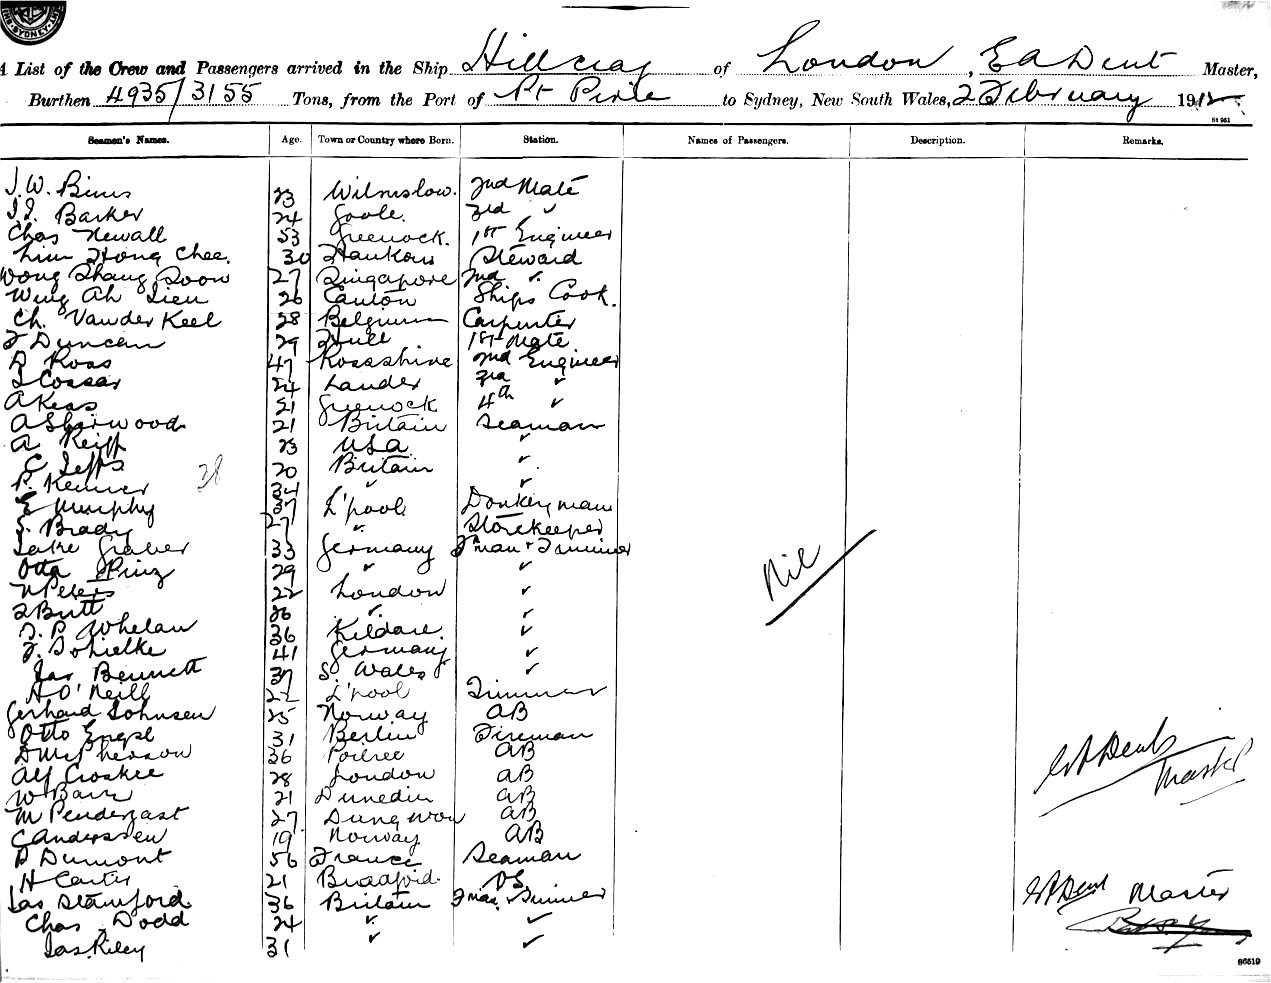 SYDNEY
A List of the Crew and Passengers arrived in the Ship Hillcrag of London, EA Dent Master,
Burthen 4935/3155 Tons, from the Port of Pt Pirie to Sydney, New South Wales, 2 February 1912
St 951
Seamen's Names. Age. Town or Country where Born. Station. Names of Passengers. Description. Remarks.
J. W. Binns 23 Wilmslow. 2nd Mate
Barker 24 Goole. 3rd ✓
Chas Newall 53 Greenock. 1st Engineer
Lim Hong Chee. 30 Hankow Steward
Wong Shang Soon 27 Singapore 2nd ✓
Wing Ah Sien 26 Canton Ships Cook.
Ch. Vander Keel 28 Belgium Carpenter
Duncan 29 Hull 1st Mate
R Ross 47 Rossshire 2nd Engineer
Cossar 24 Lauder 3rd ✓
A Kess 21 Greenock 4th ✓
A Sherwood 21 Britain Seaman
A Reiff 23 USA ✓
C Jeffs 20 Britain ✓
28
P. Kenner 34 ✓ ✓
E Murphy 37 L'pool Donkeyman
Brady 27 ✓ Storekeeper
Graber 33 Germany F'man & Trimmer
Otto Prinz 29 ✓ ✓
N Peters 22 London ✓
Butt 26 ✓ ✓
Nil
Whelan 36 Kildare. ✓
F. Schielke 41 Germany ✓
Jas Bennett 37 S. Wales ✓
H O'Neill 22 L'pool Trimmer
Gerhard Johnsen 25 Norway AB
Otto Engel 31 Berlin Fireman
D McPherson 36 AB
EA Dent
Master
Alf Croskee 28 London AB
W Barr 21 Dunedin AB
M Pendergast 27 AB
C Anderssen 19 Norway AB
Dumont 56 France Seaman
H Carter 21 Bradford. OS
Jas Stamford 36 Britain F'man & Trimmer
EA Dent Master
Chas Dodd 24 ✓ ✓
Jas. Riley 31 ✓ ✓
86519